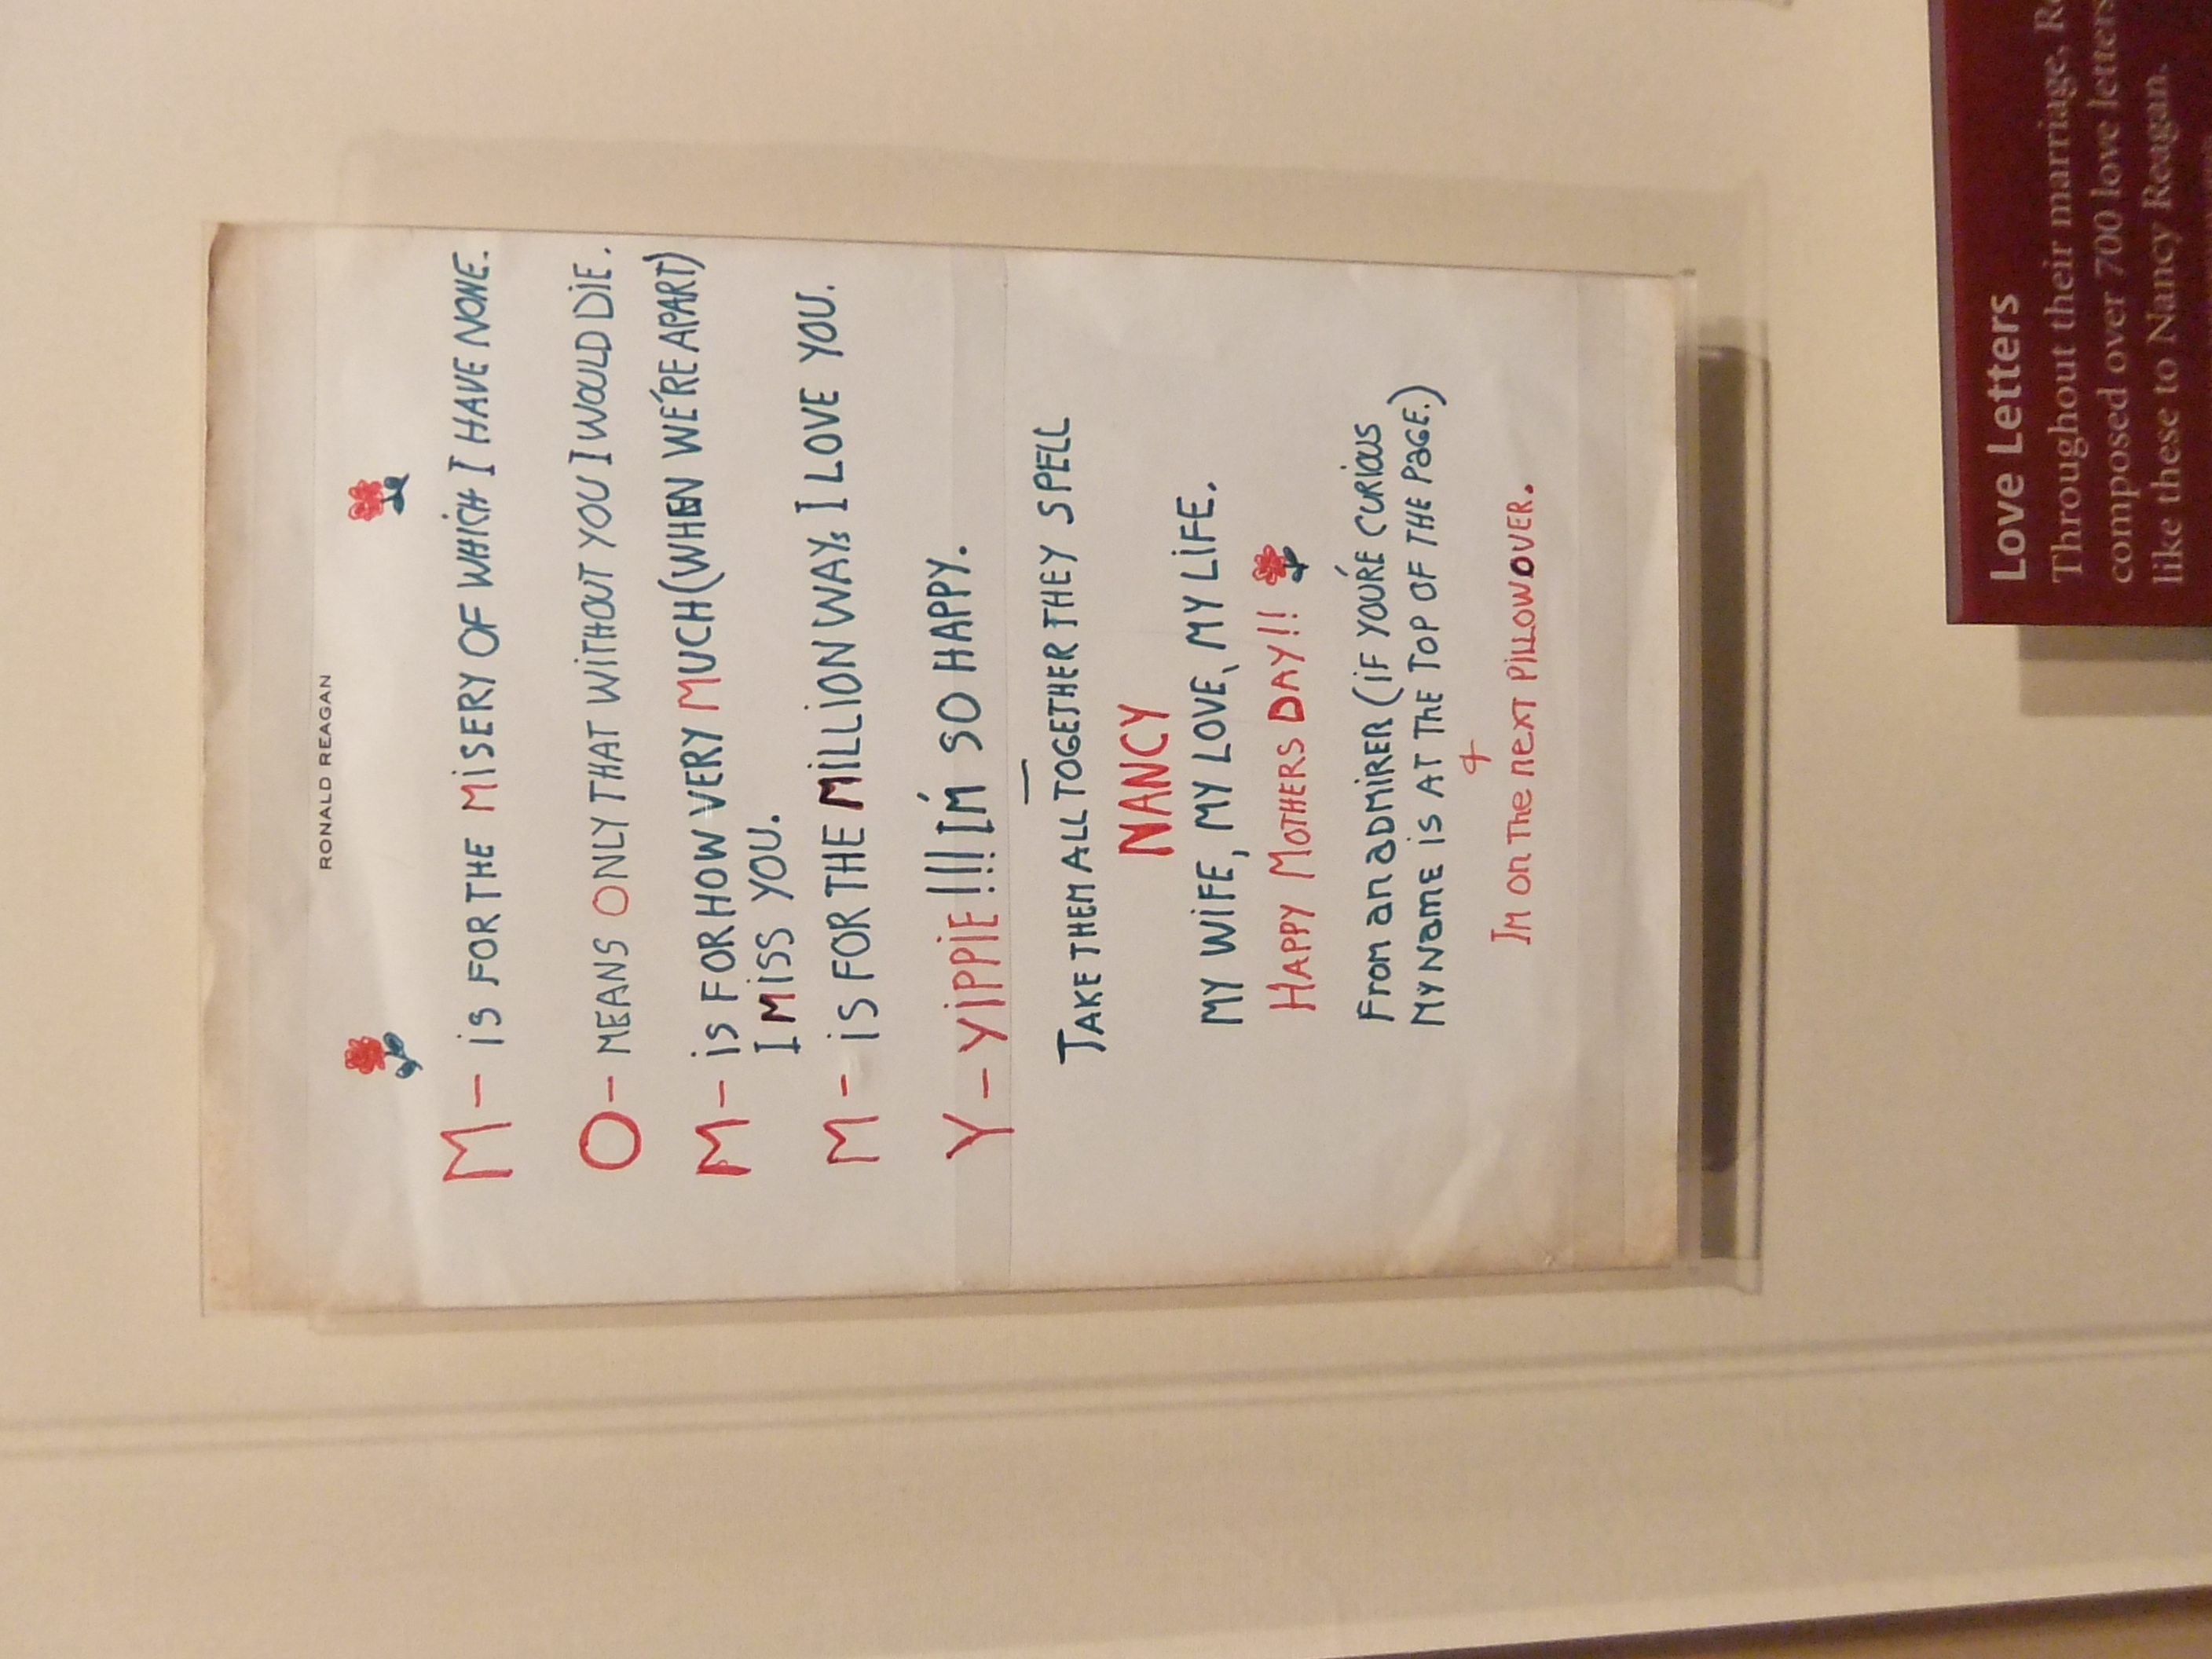 RONALD REAGAN
M - iS FOR THE MiSERY OF WHiCH I HAVE NONE.
O - MEANS ONLY THAT WiTHOUT YOU I WOULD DiE.
M - iS FOR HOW VERY MUCH (WHEN WE'RE APART)
I MiSS YOU.
M - iS FOR THE MiLLiON WAYs I LOVE YOU.
Y - YiPPiE!!! I'M SO HAPPY.
—
TAKE THEM ALL TOGETHER THEY SPELL
NANCY
MY WiFE, MY LOVE, MY LiFE.
HAPPY MOTHERS DAY!!
From an aDMiRER (iF YOU'RE CURiOUS
MY NamE iS AT THE TOP OF THE PaGE.)
&
IM On The neXT PiLLOW OVER.
Love Letters
Throughout their marriage,
composed over 700 love letters
like these to Nancy Reagan.